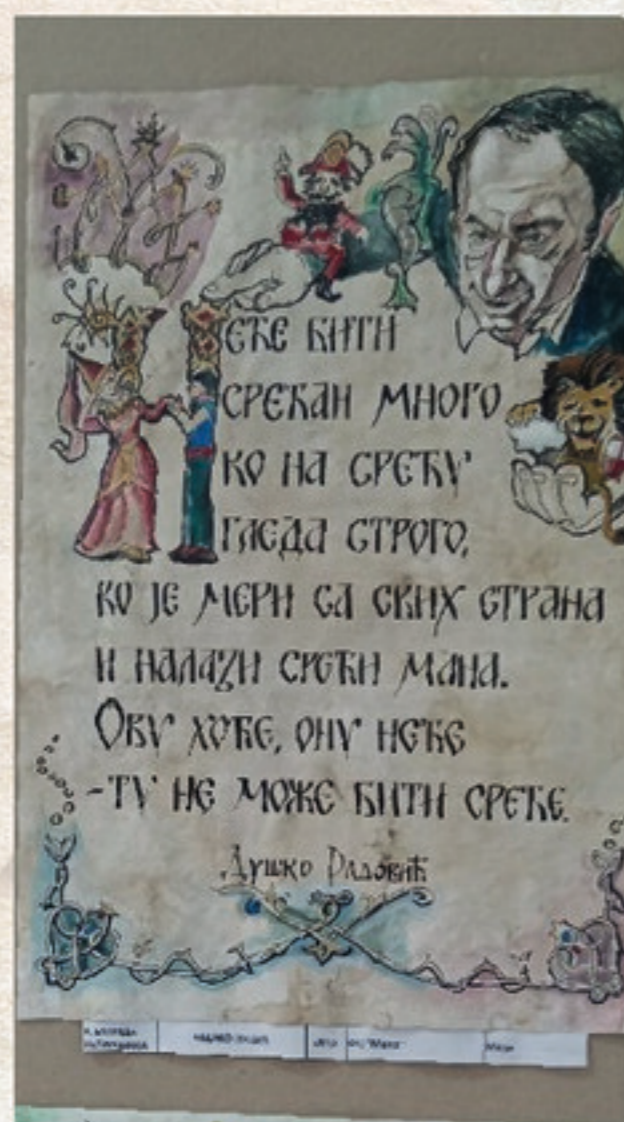 Неће бити
срећан много
ко на срећу
гледа строго,
ко је мери са свих страна
и налази срећи мана.
Ову хоће, ону неће
-ту не може бити среће.
Душко Радовић